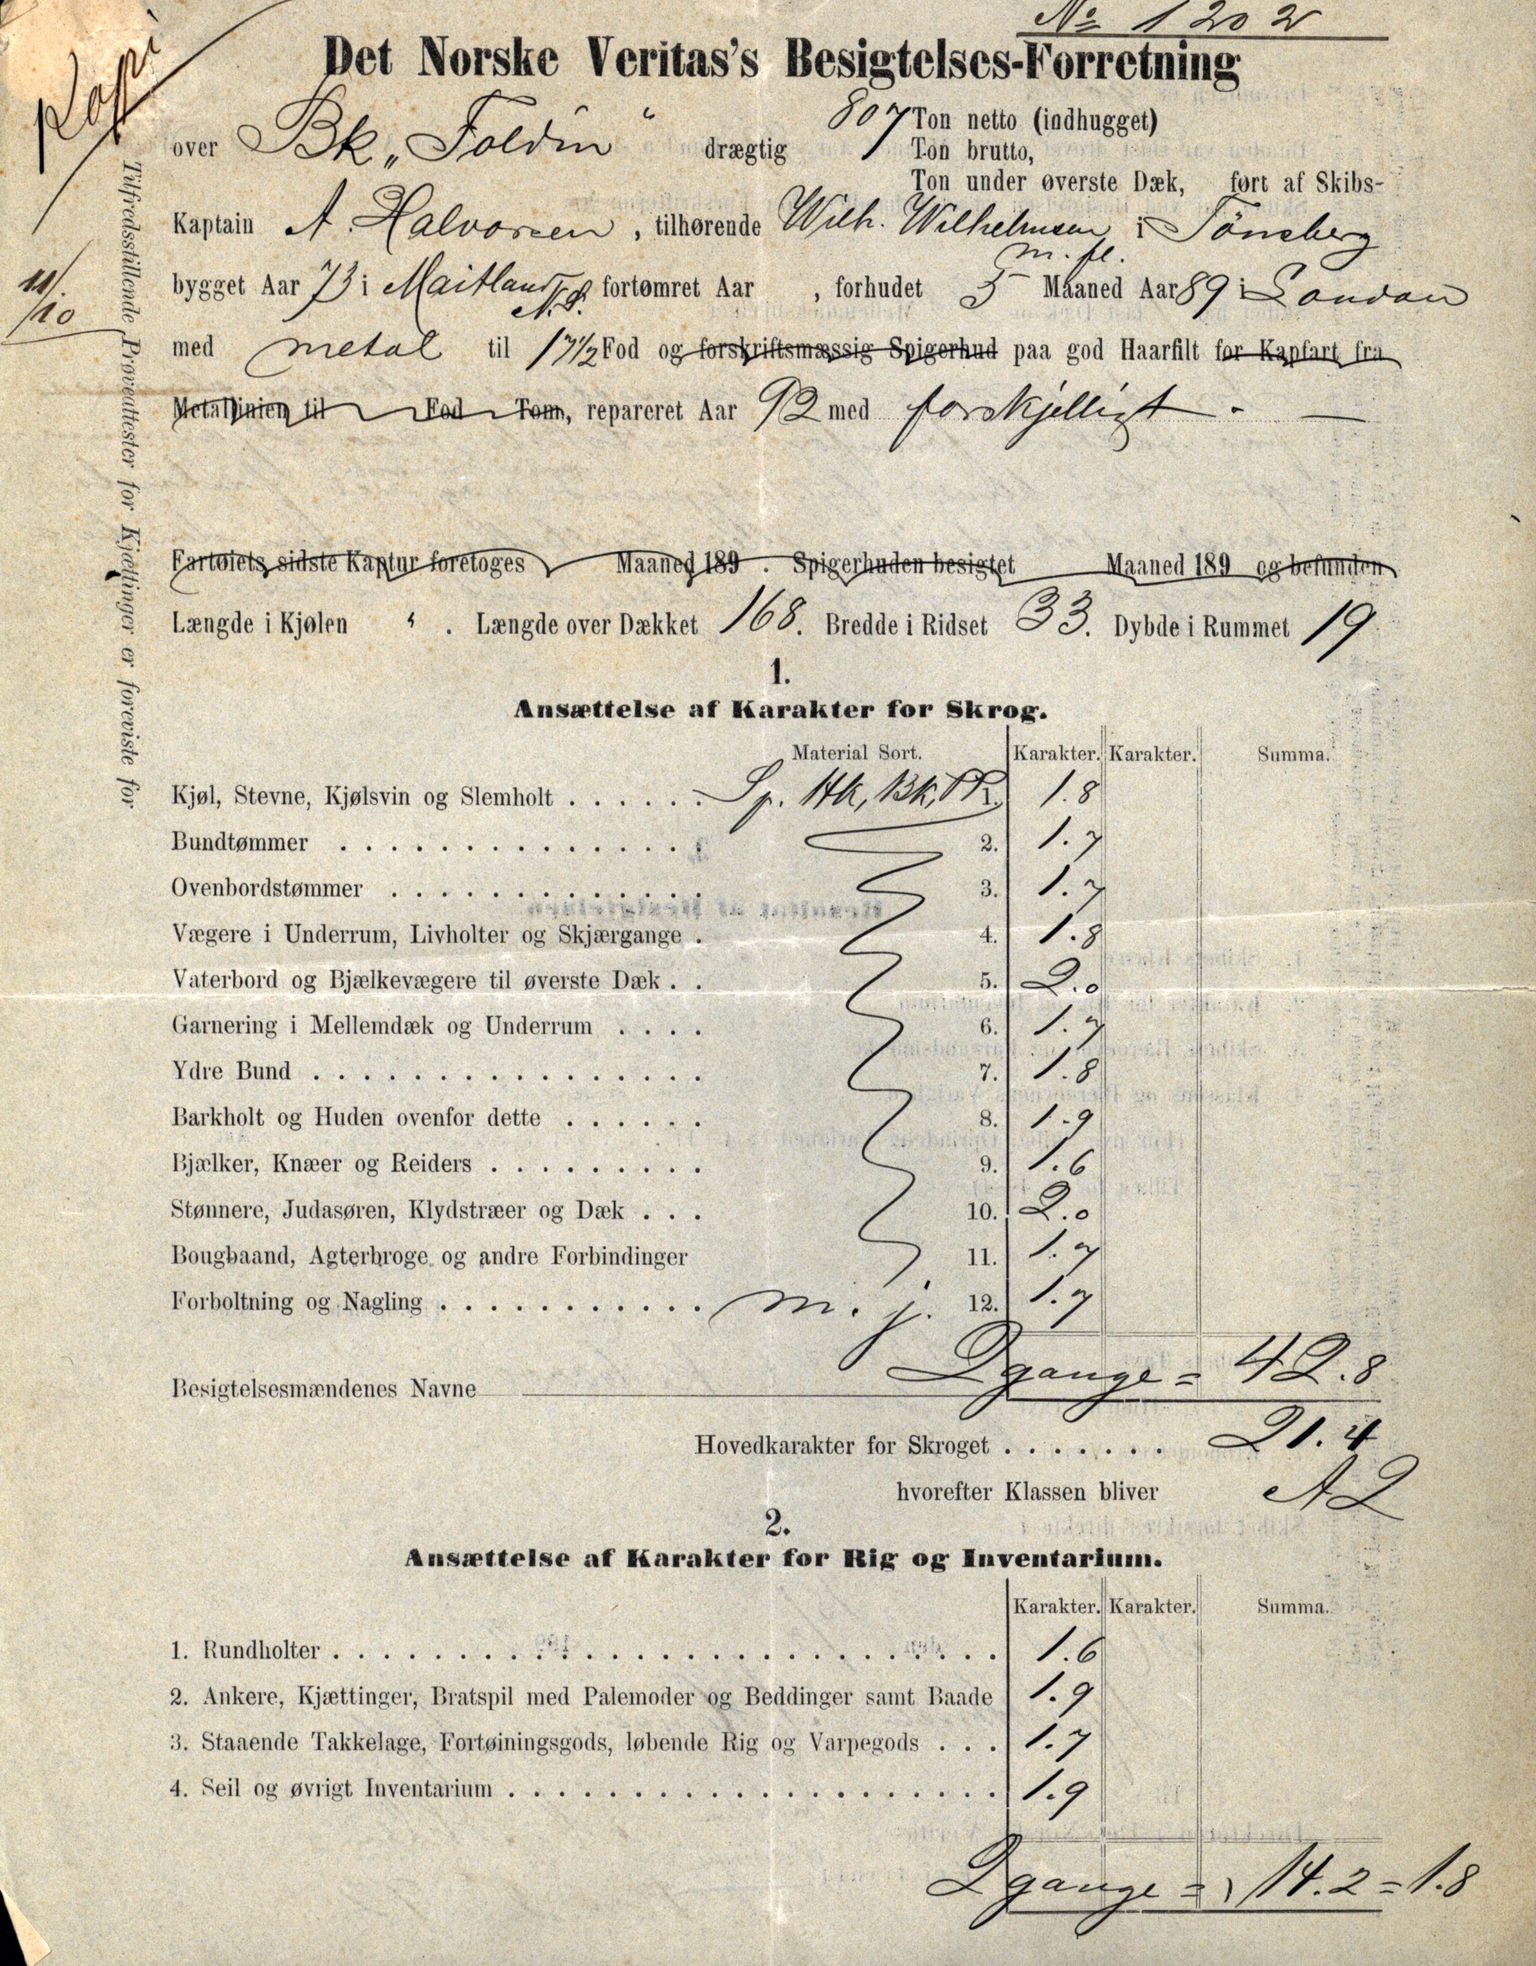 No 1202
Kopi
Det Norske Veritas's Besigtelses-Forretning
over Bk „Foldin" drægtig 807 Ton netto (indhugget)
Ton brutto,
Ton under øverste Dæk, ført af Skibs-
Kaptain A. Halvorsen, tilhørende Wilh. Wilhelmsen i Tönsberg
m. fl.
bygget Aar 73 i Maitland N.S. fortømret Aar , forhudet 5 Maaned Aar 89 i London
11/10
med metal til 17 1/2 Fod og forskriftsmæssig Spigerhud paa god Haarfilt for Kapfart fra
Metallinien til Fod Tom, repareret Aar 92 med forskjelligt. —
Tilfredsstillende Proveattester for Kjættinger er foreviste for
Fartøiets sidste Kaptur foretoges Maaned 189 . Spigerhuden besigtet Maaned 189 og befunden
Længde i Kjølen " . Længde over Dækket 168. Bredde i Ridset 33. Dybde i Rummet 19
1.
Ansættelse af Karakter for Skrog.
Material Sort. Karakter. Karakter. Summa.
Kjøl, Stevne, Kjølsvin og Slemholt . . . . . . Sp. Hk, Bk, PP 1. 1.8
Bundtømmer . . . . . . . . . . . . . . . 2. 1.7
Ovenbordstømmer . . . . . . . . . . . . . 3. 1.7
Vægere i Underrum, Livholter og Skjærgange . 4. 1.8
Vaterbord og Bjælkevægere til øverste Dæk . . 5. 2.0
Garnering i Mellemdæk og Underrum . . . . 6. 1.7
Ydre Bund . . . . . . . . . . . . . . . . 7. 1.8
Barkholt og Huden ovenfor dette . . . . . . 8. 1.9
Bjælker, Knæer og Reiders . . . . . . . . . 9. 1.6
Stønnere, Judasøren, Klydstræer og Dæk . . . 10. 2.0
Bougbaand, Agterbroge og andre Forbindinger 11. 1.7
Forboltning og Nagling . . . . . . . . . . . m. j. 12. 1.7
2 gange = 42.8
Besigtelsesmændenes Navne
Hovedkarakter for Skroget . . . . . . . 21.4
hvorefter Klassen bliver A2
2.
Ansættelse af Karakter for Rig og Inventarium.
Karakter. Karakter. Summa.
1. Rundholter . . . . . . . . . . . . . . . . . . . . . . . . . . . 1.6
2. Ankere, Kjættinger, Bratspil med Palemoder og Beddinger samt Baade 1.9
3. Staaende Takkelage, Fortøiningsgods, løbende Rig og Varpegods . . . 1.7
4. Seil og øvrigt Inventarium . . . . . . . . . . . . . . . . . . . . 1.9
2 gange = 14.2 = 1.8